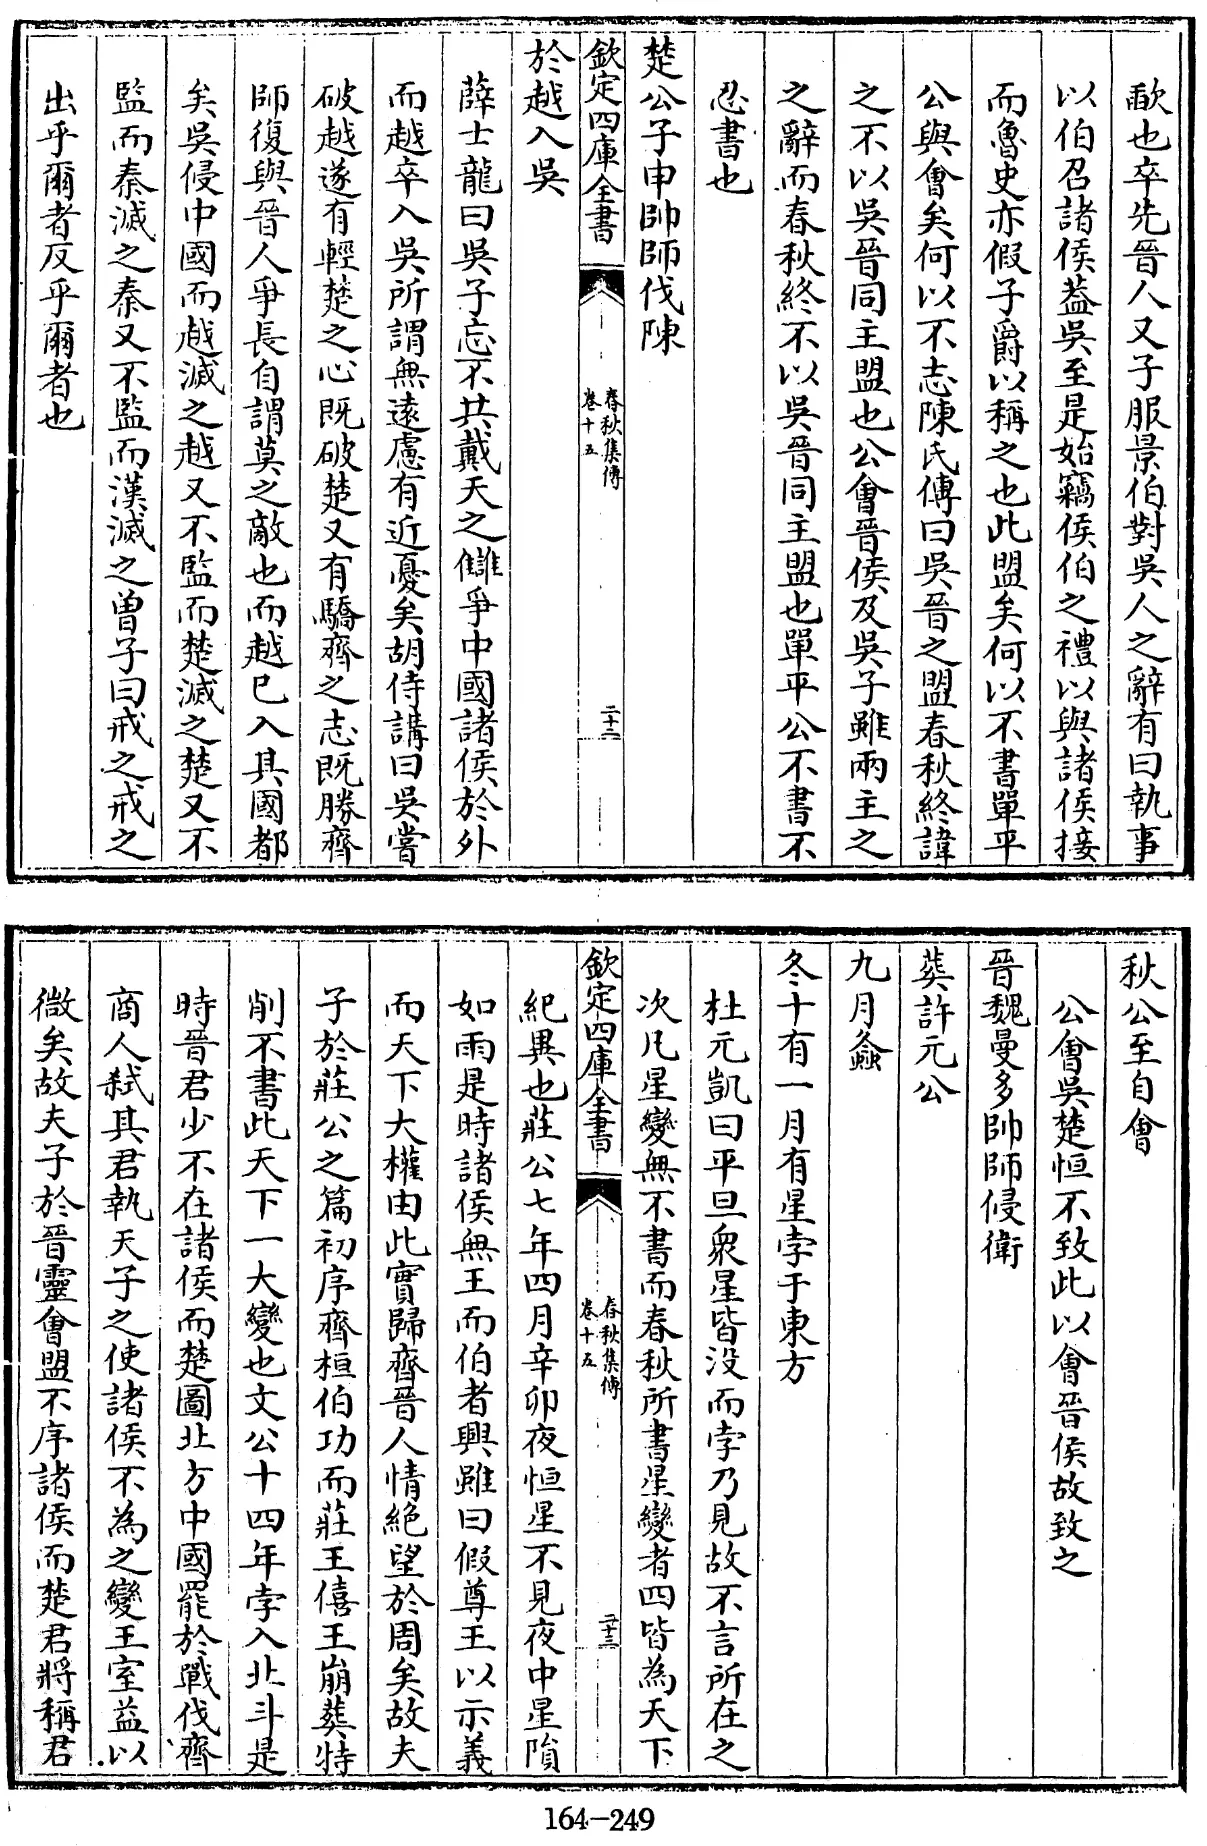 歃也卒先晉人又子服景伯對吳人之辭有曰執事
以伯召諸侯葢吳至是始竊侯伯之禮以與諸侯接
而魯史亦假子爵以稱之也此盟矣何以不書單平
公與會矣何以不志陳氏傳曰吳晉之盟春秋終諱
之不以吳晉同主盟也公會晉侯及吳子雖兩主之
之辭而春秋終不以吳晉同主盟也單平公不書不
忍書也
楚公子申帥師伐陳
欽定四庫全書
春秋集傳
卷十五
二十二
於越入吳
薛士龍曰吳子忘不共戴天之讎爭中國諸侯於外
而越卒入吳所謂無遠慮有近憂矣胡侍講曰吳嘗
破越遂有輕楚之心既破楚又有驕齊之志既勝齊
師復與晉人爭長自謂莫之敵也而越已入其國都
矣吳侵中國而越滅之越又不監而楚滅之楚又不
監而秦滅之秦又不監而漢滅之曾子曰戒之戒之
出乎爾者反乎爾者也
秋公至自會
公會吳楚恒不致此以會晉侯故致之
晉魏曼多帥師侵衛
葬許元公
九月螽
冬十有一月有星孛于東方
杜元凱曰平旦衆星皆没而孛乃見故不言所在之
次凡星變無不書而春秋所書星變者四皆為天下
欽定四庫全書
春秋集傳
卷十五
二十三
紀異也莊公七年四月辛卯夜恒星不見夜中星隕
如雨是時諸侯無王而伯者興雖曰假尊王以示義
而天下大權由此實歸齊晉人情絶望於周矣故夫
子於莊公之篇初序齊桓伯功而莊王僖王崩葬特
削不書此天下一大變也文公十四年孛入北斗是
時晉君少不在諸侯而楚圖北方中國罷於戰伐齊
商人弑其君執天子之使諸侯不為之變王室益以
微矣故夫子於晉靈會盟不序諸侯而楚君將稱君
164-249